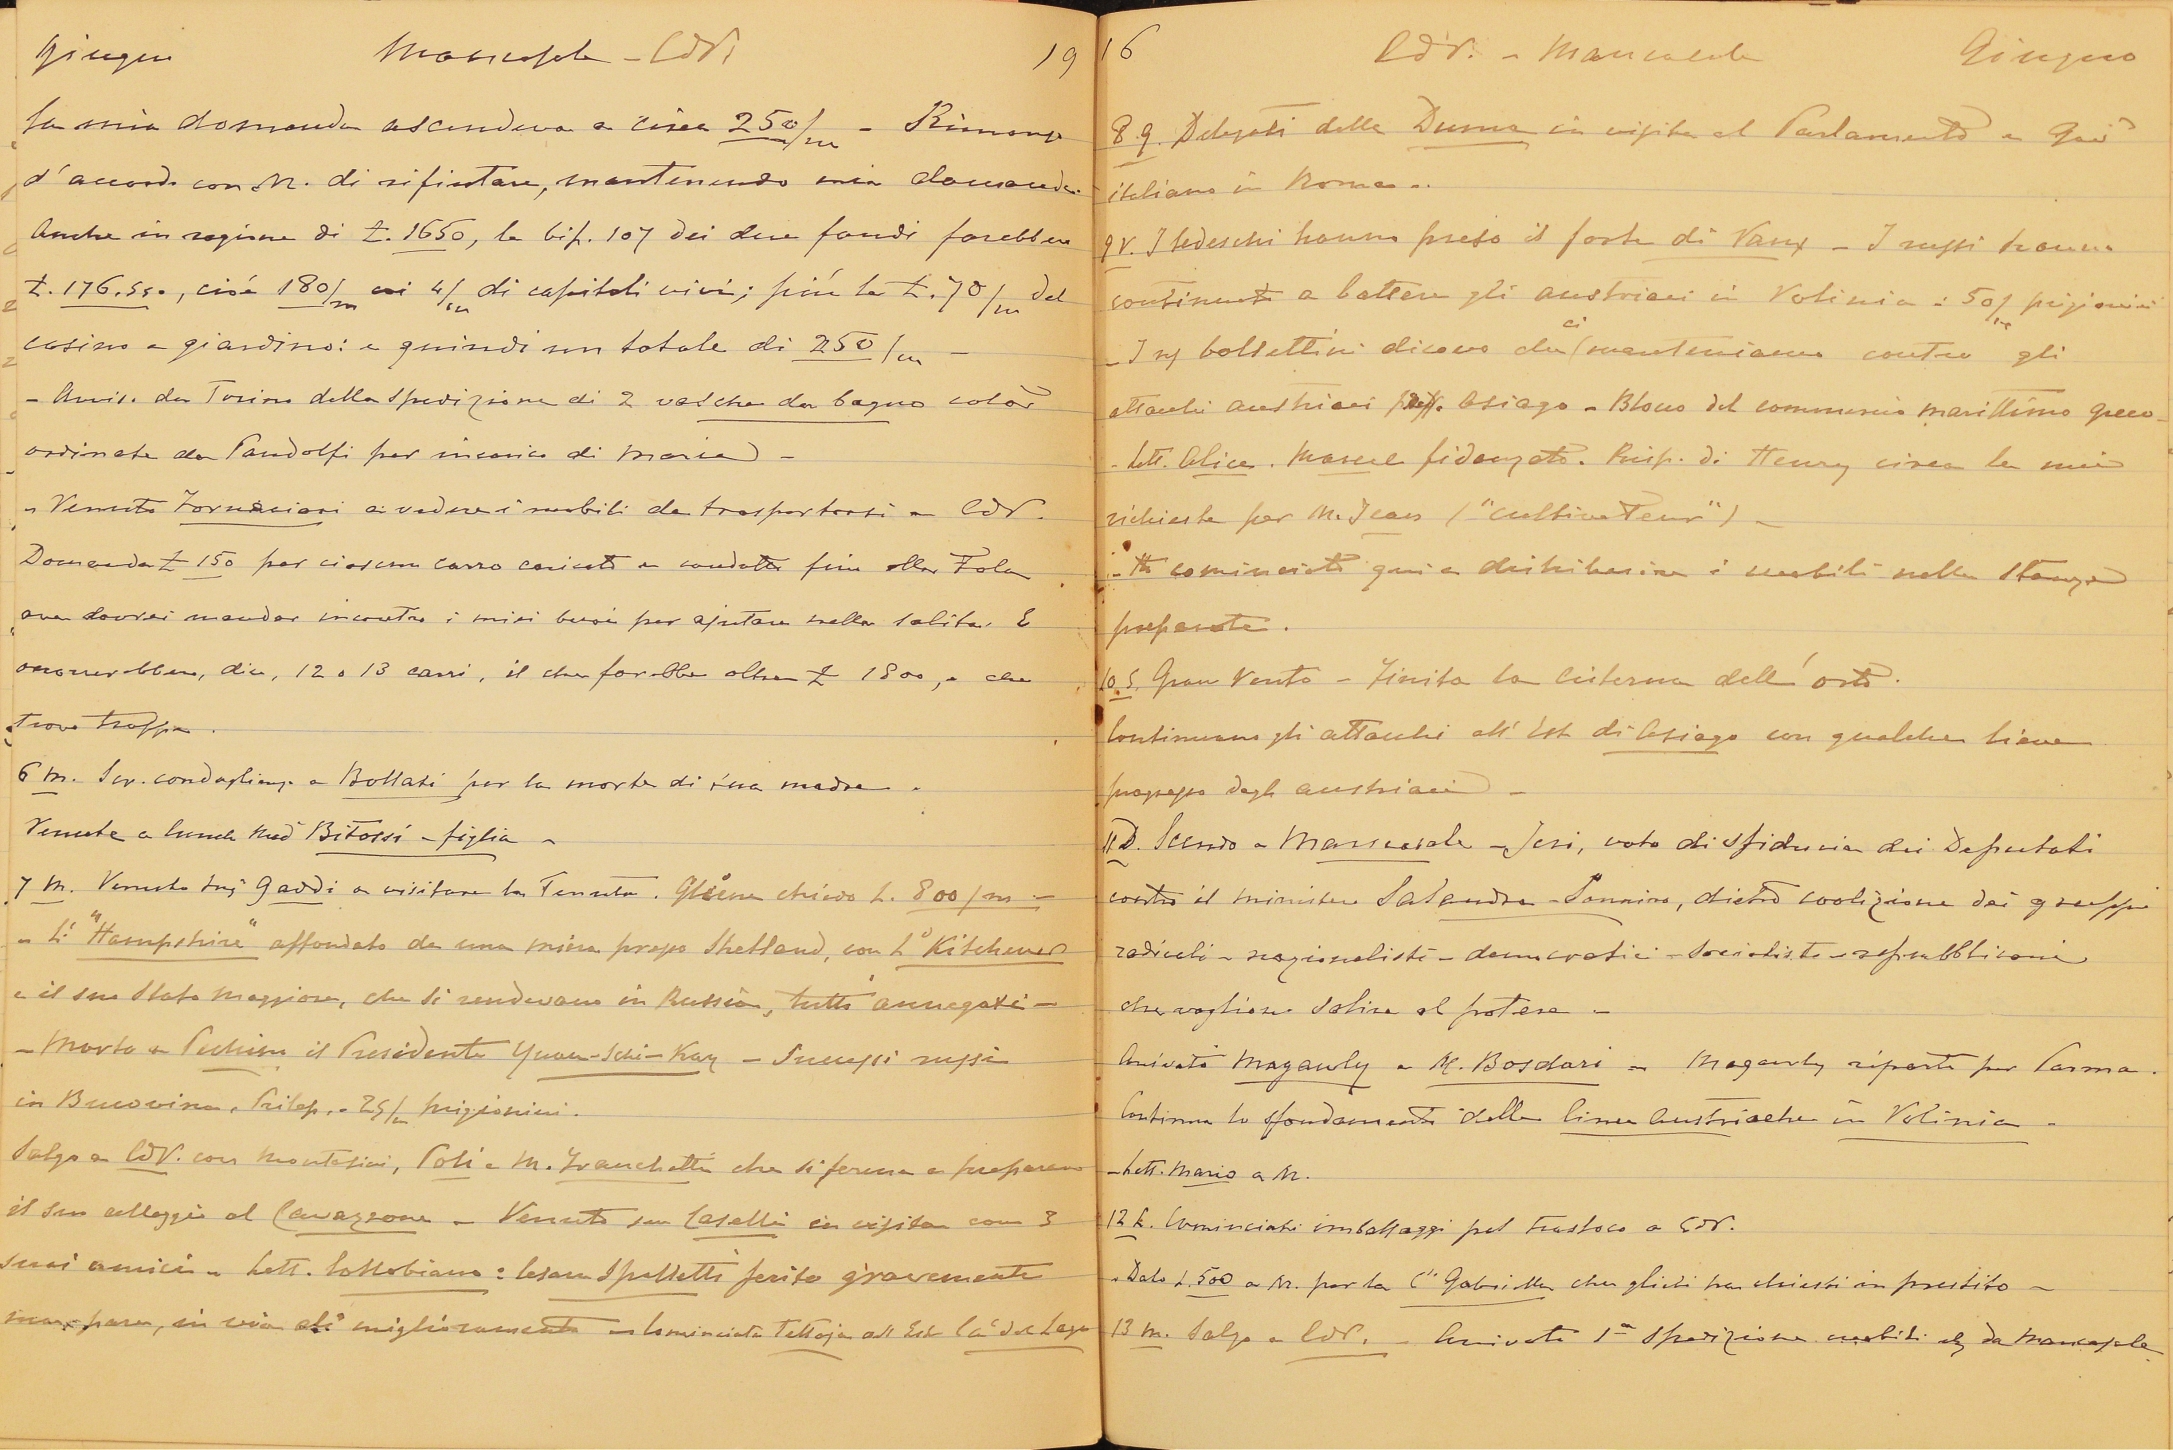 Giugno Mancasale - CdV. 19
la mia domanda ascendeva a circa 250/m - Rimango
d'accordo con M. di rifiutare, mantenendo mia domanda.
Anche in ragione di £. 1650, le bif. 107 dei due fondi farebbero
£. 176.550, cioè 180/m coi 4/m di capitali vivi; più le £. 70/m del
casino e giardino: e quindi un totale di 250/m -
- Avviso da Torino della spedizione di 2 vasche da bagno colà
ordinate da Pandolfi per incarico di Maria -
- Venuto Fornaciari a vedere i mobili da trasportarsi a CdV.
Domanda £ 150 per ciascun carro caricato e condotto fino alla Fola
ove dovrei mandar incontro i miei buoi per ajutare nella salita. E
occorrerebbero, dice, 12 o 13 carri, il che farebbe oltre £ 1800, e che
trovo troppo.
6 m. Scr. condoglianze a Bollati per la morte di sua madre.
Venute a lunch Bitossi - figlia -
7 m. Venuto Gaddi a visitare la Tenuta. Gliene chiedo L. 800/m -
- L'"Hampshire" affondato da una mina presso Shetland, con Ld Kitchener
e il suo Stato Maggiore, che si rendevano in Russia, tutti annegati -
- Morto a Pechino il Presidente Yuan-Schi-Kay - Successi russi
in Bucovina, 25/m prigionieri.
Salgo a CdV. con Montesini, Poli e M. Franchetti che si ferma a preparare
il suo alloggio al Cavazzone - Venuto Caselli in visita con 3
suoi amici - Lett. Cattobiano: Cesare Spalletti ferito gravemente
ma, pare, in via di miglioramento - Cominciata Tettoja all'Est Ca' del Lago
16 CdV. - Mancasale Giugno
8.g. Delegati della Duma in visita al Parlamento e Gov°
italiano in Roma -.
9 v. I tedeschi hanno preso il forte di Vaux - I russi hanno
continuato a battere gli austriaci in Volinia: 50/m prigionieri
- I bollettini dicono che ci manteniamo contro gli
attacchi austriaci Asiago - Blocco del commercio marittimo greco -
- Lett. Alice. Marcel fidanzato. Risp. di Henry circa le mie
richieste per M. Jean ("cultivateur") -
- Ho cominciato qui a distribuire i mobili nelle stanze
preparate.
10.s. Gran Vento - Finita la cisterna dell'orto.
Continuano gli attacchi all'Est di Asiago con qualche lieve
progresso degli austriaci -
11 D. Scendo a Mancasale - Jeri, voto di sfiducia dei Deputati
contro il ministero Salandra - Sonnino, dietro coalizione dei gruppi
radicali - nazionalisti - democratici - socialisti - repubblicani
che vogliono salire al potere -
Arrivati Magauly e M. Bosdari - Magauly riparte per Parma.
Continua lo sfondamento delle linee Austriache in Volinia -
- Lett. Mario a M.
12 L. Cominciati imballaggi pel trasloco a CdV.
- Dato L. 500 a M. per la Cssa Gabriella che glieli ha chiesti in prestito -
13 M. Salgo a CdV. - Arrivata 1ª spedizione mobili da Mancasale